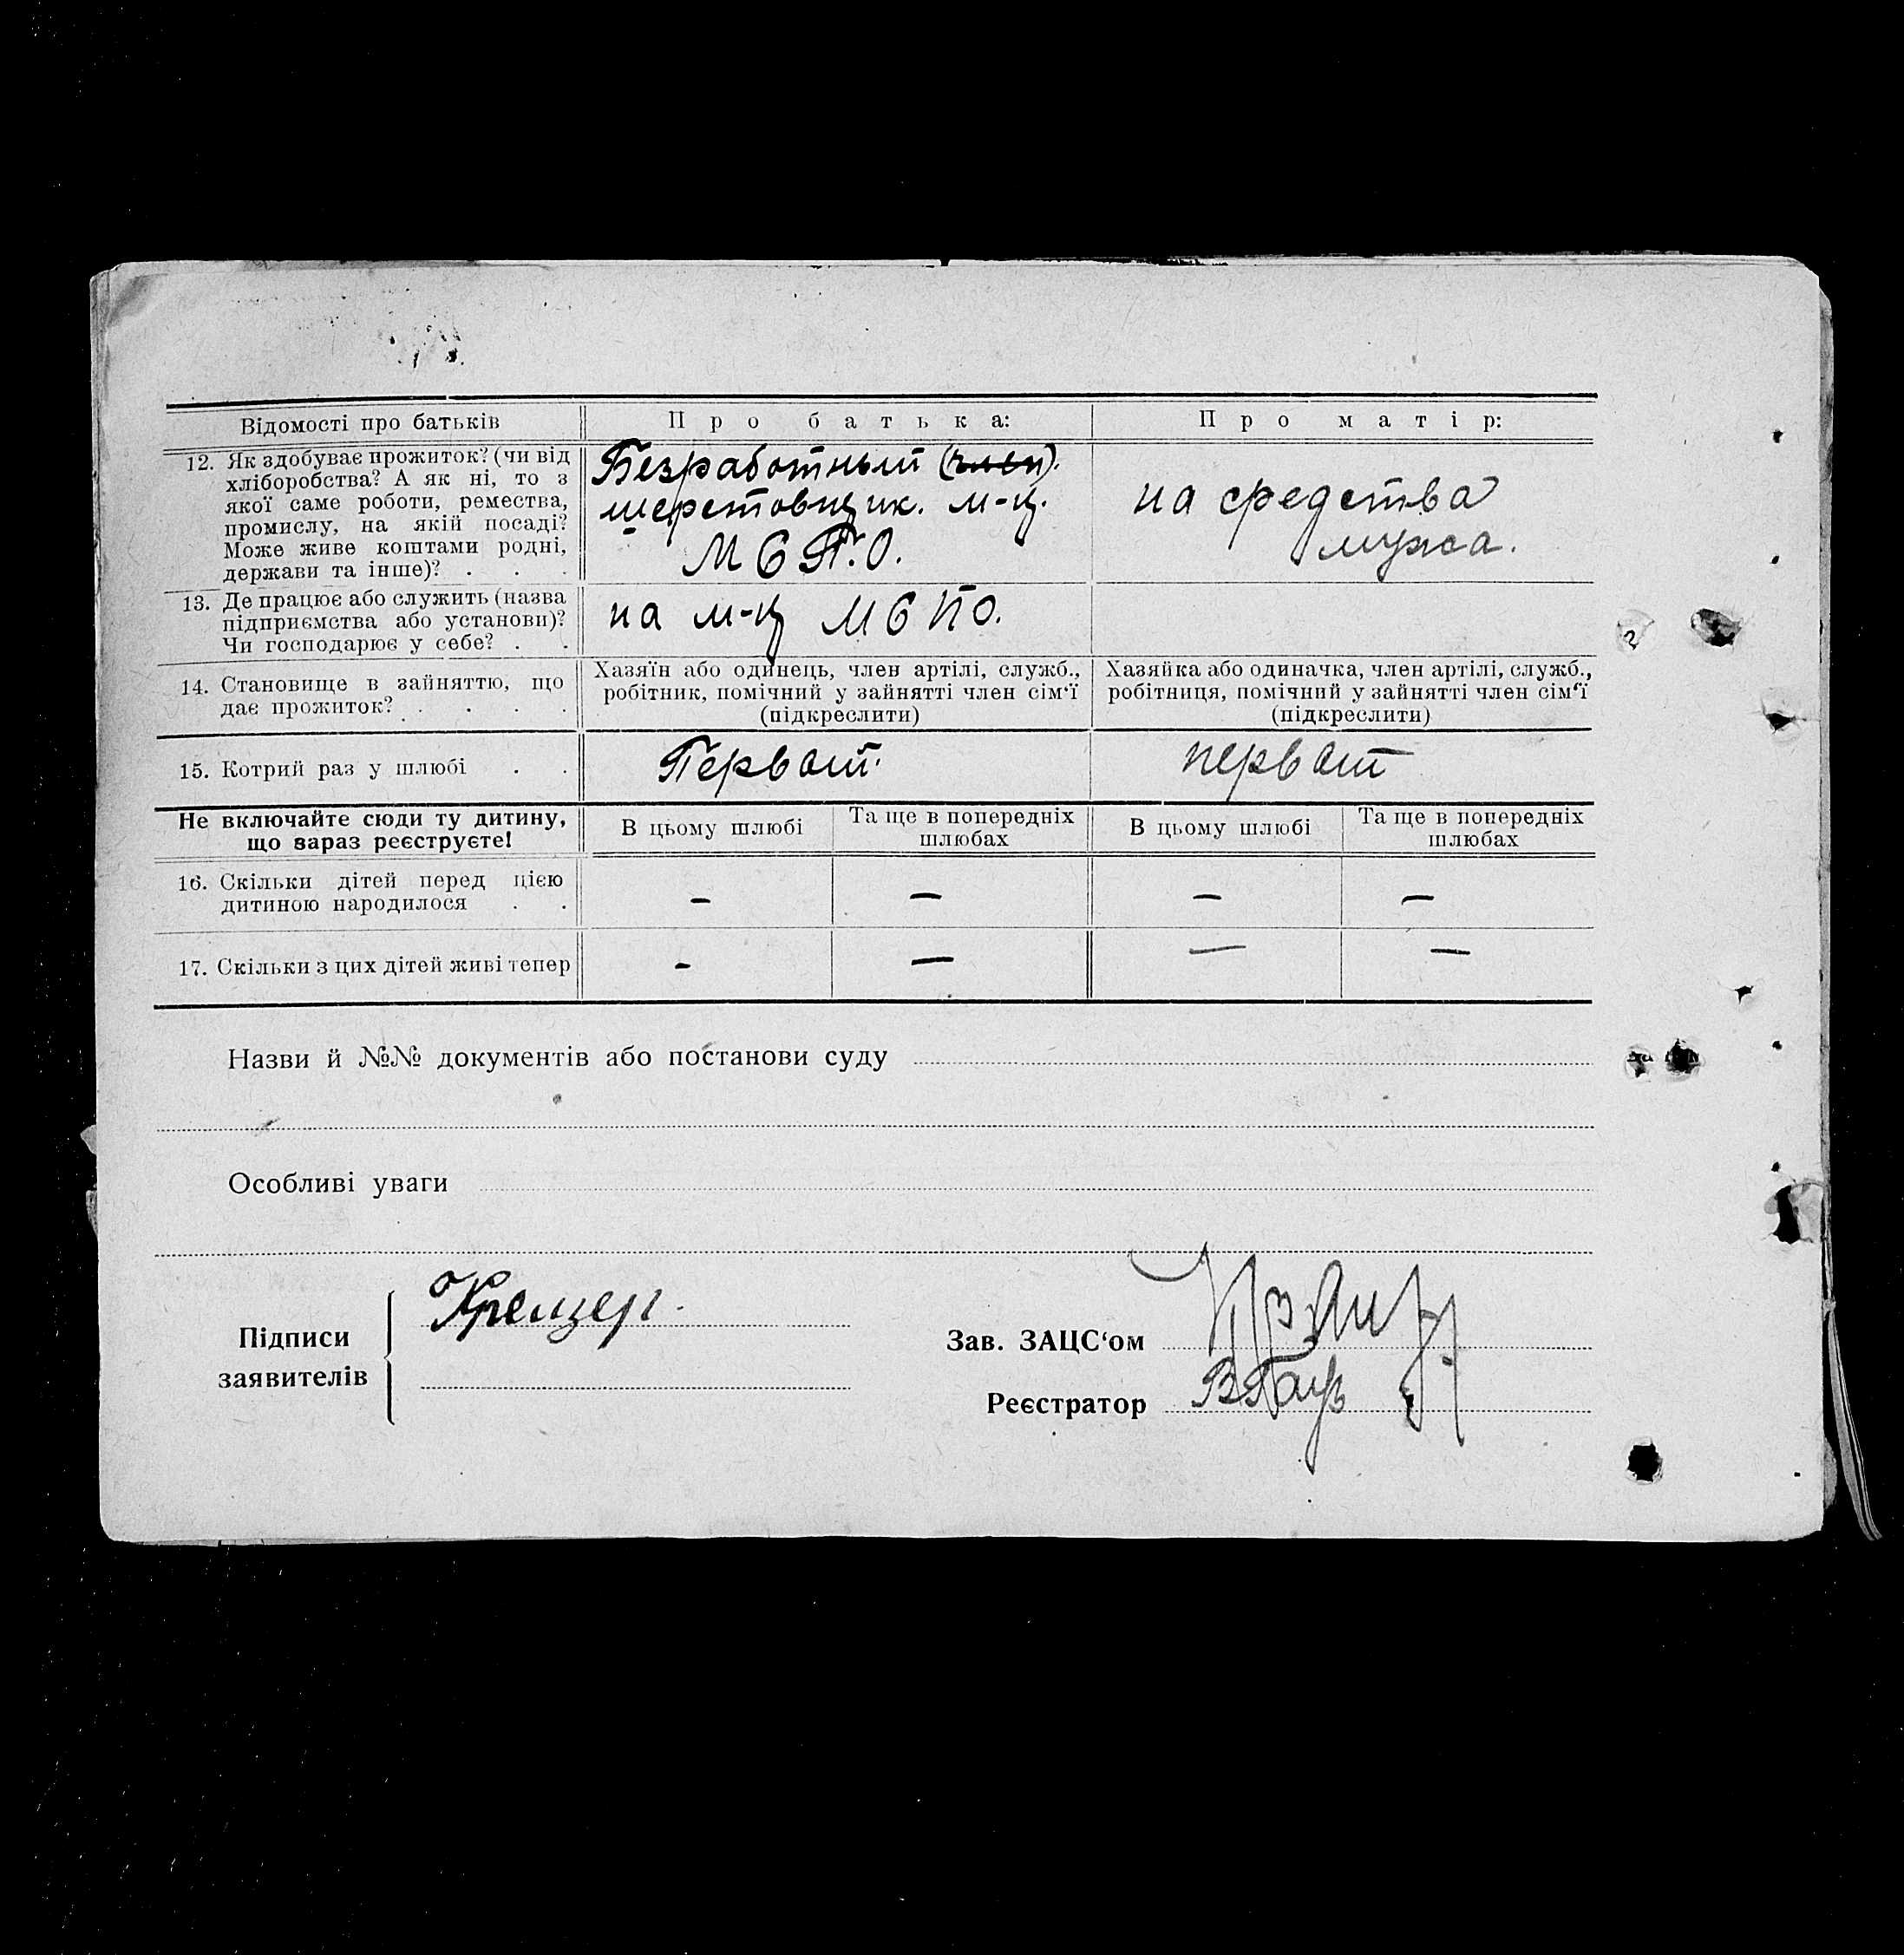 Відомості про батьків
Про батька:
Про матір:
12. Як здобуває прожиток? (чи від
хліборобства? А як ні, то з
якої саме роботи, ремества,
промислу, на якій посаді?
Може живе коштами родні,
держави та інше)? . . .
Безработный (член).
шерстовщик. м-ц.
М С П.О.
на средства
мужа.
13. Де працює або служить (назва
підприємства або установи)?
Чи господарює у себе? . .
на м-ц МСПО.
14. Становище в зайняттю, що
дає прожиток? . . . .
Хазяїн або одинець, член артілі, служб.,
робітник, помічний у зайнятті член сім‘ї
(підкреслити)
Хазяйка або одиначка, член артілі, служб.,
робітниця, помічний у зайнятті член сім‘ї
(підкреслити)
15. Котрий раз у шлюбі . .
Первый.
первый
Не включайте сюди ту дитину,
що зараз реєструєте!
В цьому шлюбі
Та ще в попередніх
шлюбах
В цьому шлюбі
Та ще в попередніх
шлюбах
16. Скільки дітей перед цією
дитиною народилося . .
– – – –
17. Скільки з цих дітей живі тепер
– – – –
Назви й №№ документів або постанови суду
Особливі уваги
Підписи
заявителів
Кремцер.
Зав. ЗАЦС‘ом
Реєстратор